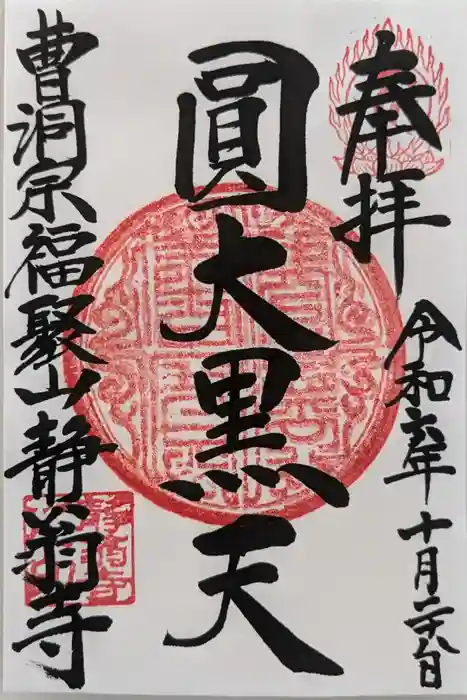 奉拝
令和六年十月二八日
圓大黒天
曹洞宗福聚山静翁寺